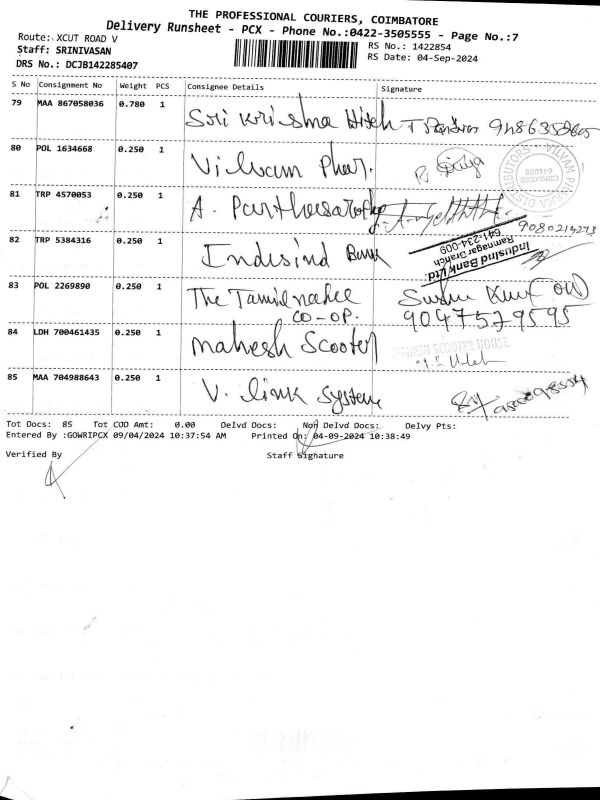 THE PROFESSIONAL COURIERS, COIMBATORE
Delivery Runsheet - PCX - Phone No.:0422-3505555 - Page No.:7
Route: XCUT ROAD V
RS No.: 1422854
Staff: SRINIVASAN
RS Date: 04-Sep-2024
DRS No.: DCJB142285407
S No Consignment No Weight PCS Consignee Details Signature
79 MAA 867058036 0.780 1 Sri Krishna
80 POL 1634668 0.250 1 Vilvam Phar.
VILVAM PHARMA DISTRIBUTORS
COIMBATORE
81 TRP 4570053 0.250 1 A.
9080214273
82 TRP 5384316 0.250 1 Indusind Bank
Indusind Bank Ltd
Ramnagar Branch
641-234-009
83 POL 2269890 0.250 1 The Tamilnadu
CO-OP. 9047579595
84 LDH 700461435 0.250 1 Mahesh Scooter
85 MAA 704988643 0.250 1 V. link System
Tot Docs: 85 Tot COD Amt: 0.00 Delvd Docs: Non Delvd Docs: Delvy Pts:
Entered By :GOWRIPCX 09/04/2024 10:37:54 AM Printed On: 04-09-2024 10:38:49
Verified By Staff Signature